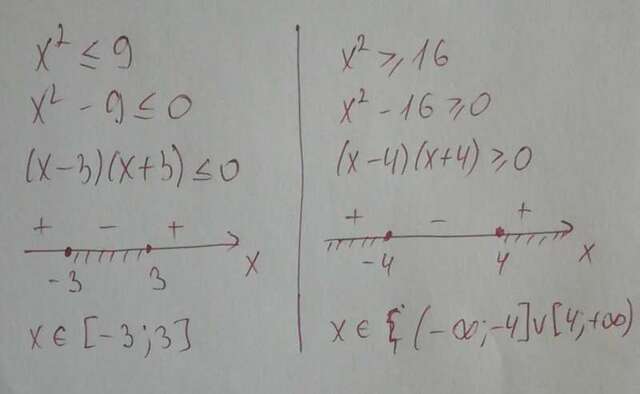 x² ≤ 9
x² - 9 ≤ 0
(x-3)(x+3) ≤ 0
+ - +
-3 3 x
x ∈ [-3; 3]
x² ≥ 16
x² - 16 ≥ 0
(x-4)(x+4) ≥ 0
+ - +
-4 4 x
x ∈ (-∞; -4] ∪ [4; +∞)